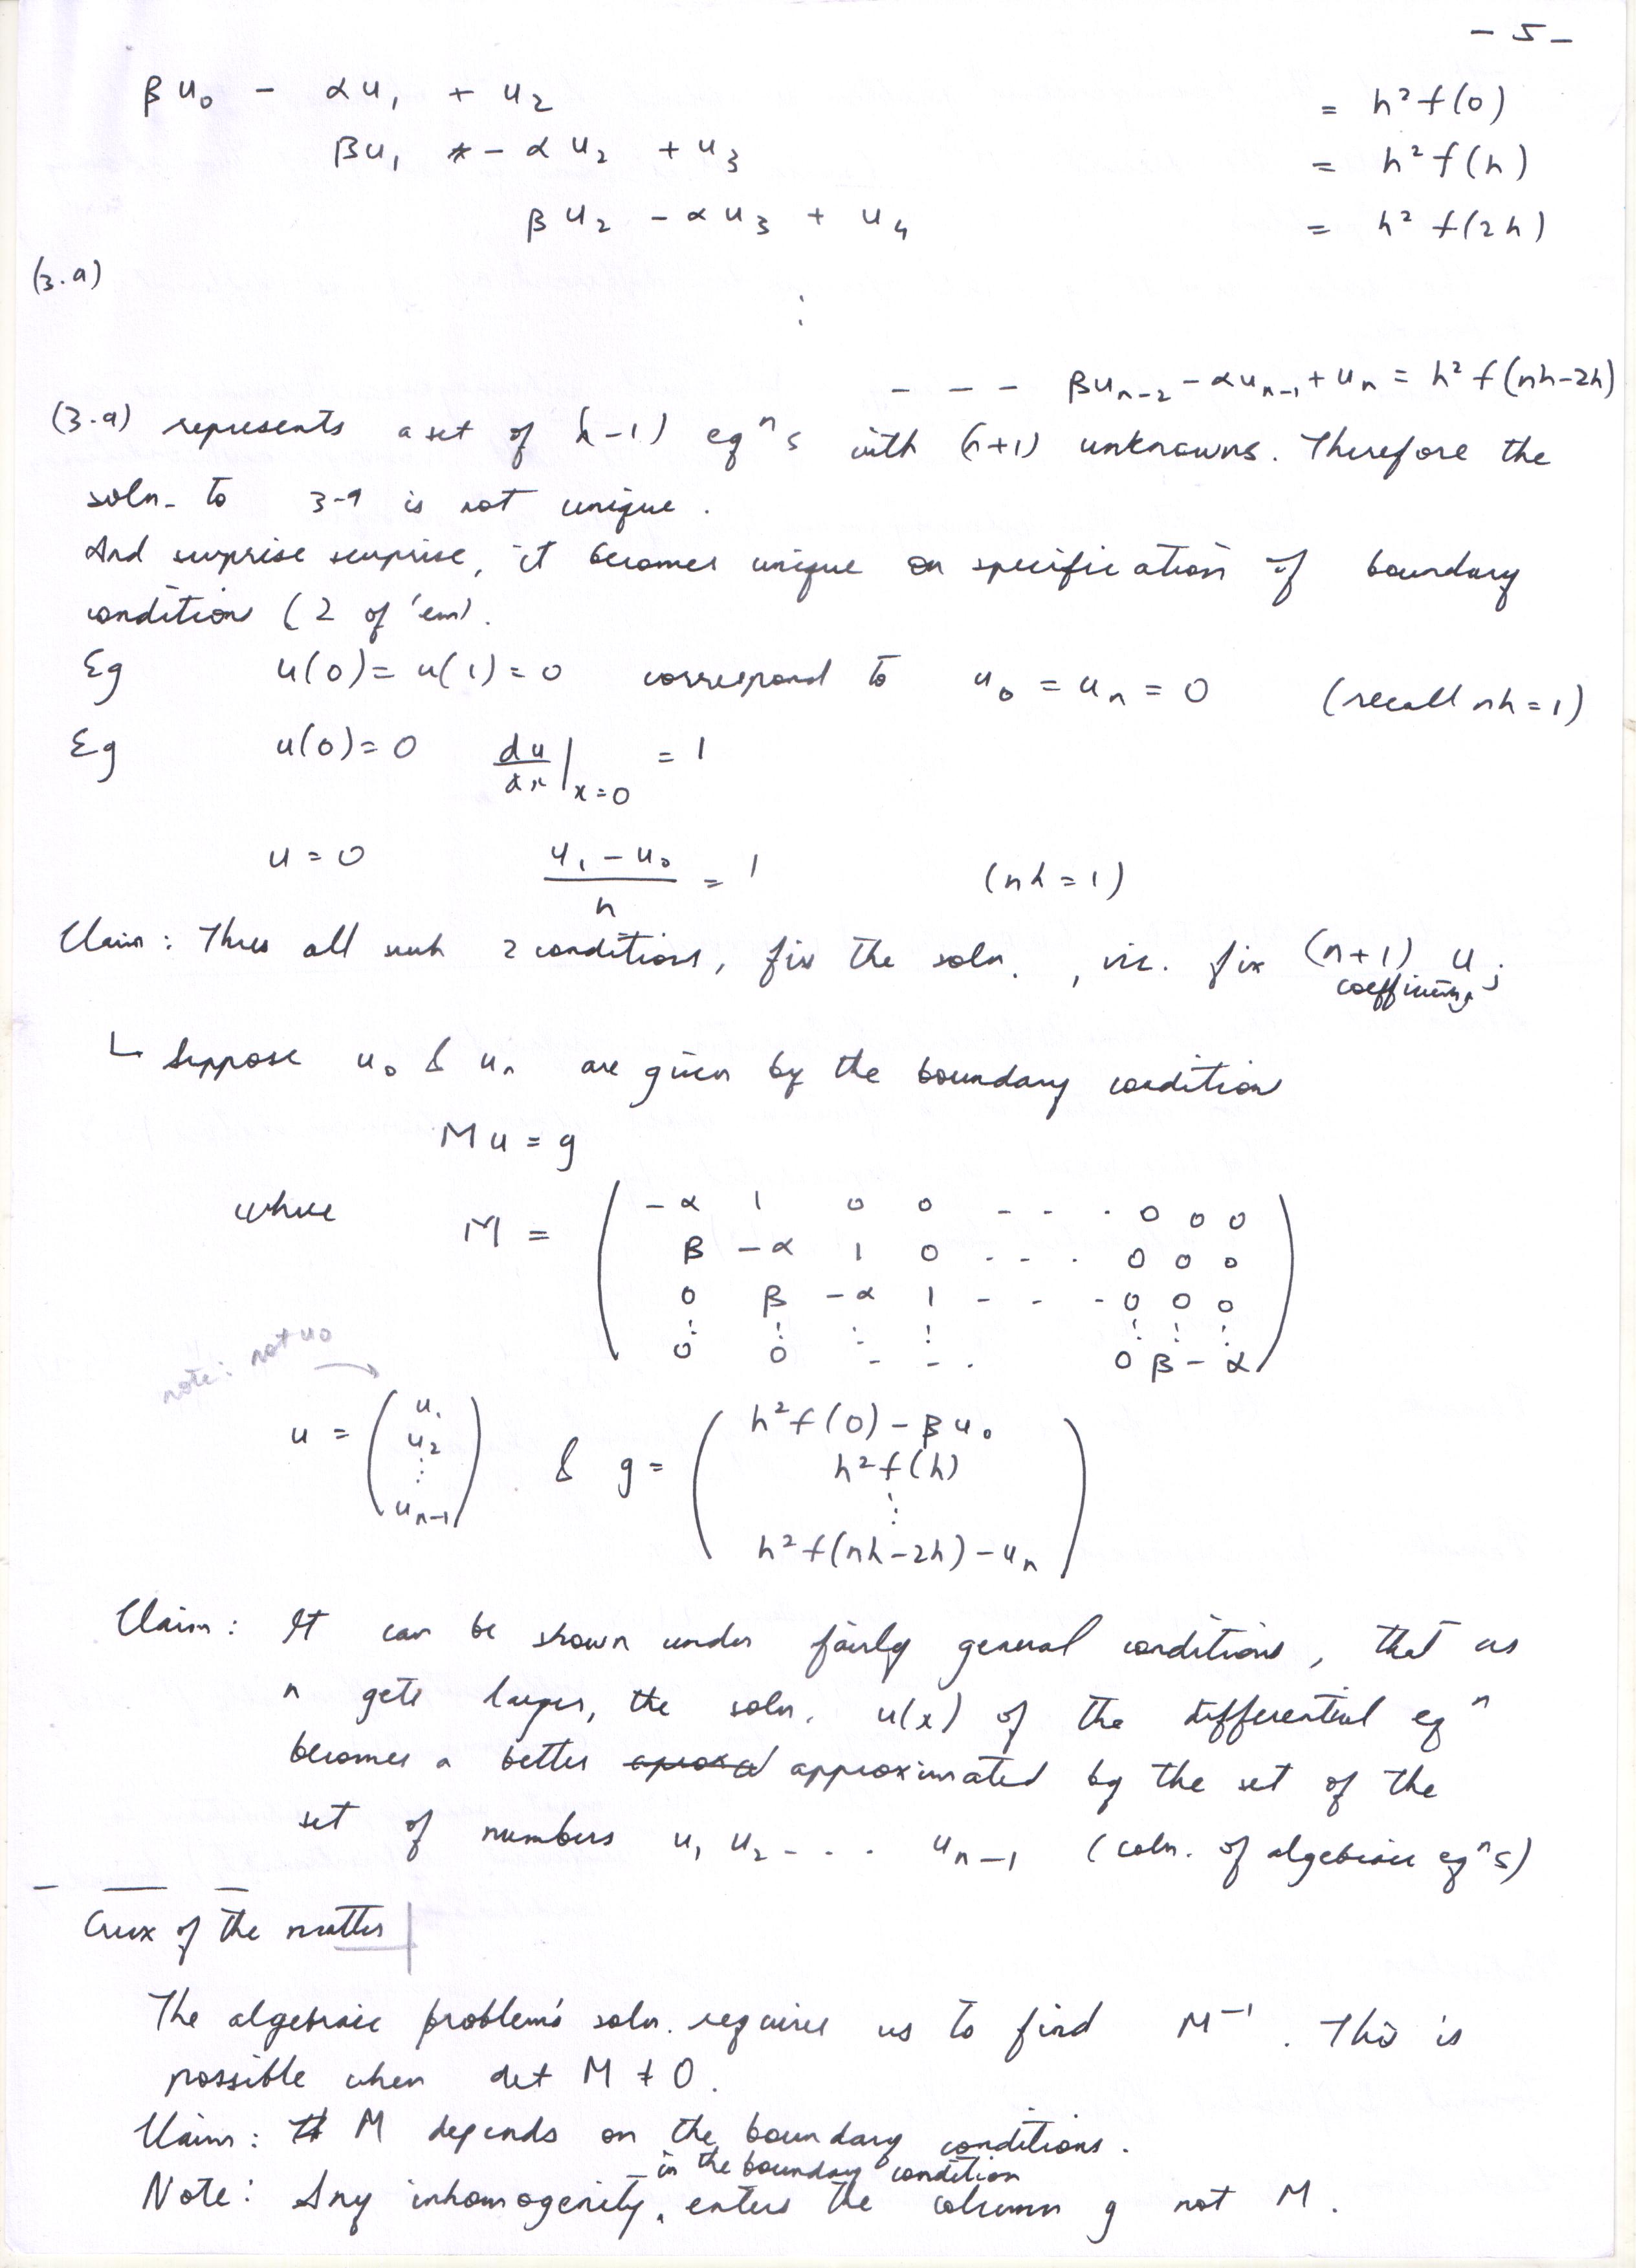 - 5 -
βu₀ - αu₁ + u₂ = h² f(0)
βu₁ - αu₂ + u₃ = h² f(h)
βu₂ - αu₃ + u₄ = h² f(2h)
(3.a)
⋮
- - - βuₙ₋₂ - αuₙ₋₁ + uₙ = h² f(nh-2h)
(3.a) represents a set of (n-1) eqⁿs with (n+1) unknowns. Therefore the
soln. to 3-a is not unique.
And surprise surprise, it becomes unique on specification of boundary
condition (2 of 'em).
Eg u(0) = u(1) = 0 correspond to u₀ = uₙ = 0 (recall nh = 1)
Eg u(0) = 0 du/dx |ₓ₌₀ = 1
u = 0 (u₁ - u₀)/h = 1 (nh = 1)
Claim: Thus all such 2 conditions, fix the soln., viz. fix (n+1) uⱼ
coefficients
↳ Suppose u₀ & uₙ are given by the boundary condition
Mu = g
where M = ( -α 1 0 0 - - · 0 0 0
β -α 1 0 · · · 0 0 0
0 β -α 1 - - - 0 0 0
⋮ ⋮ ⋮ ⋮ ⋮ ⋮ ⋮
0 0 - - · 0 β -α )
note: not u₀ →
u = ( u₁ u₂ ⋮ uₙ₋₁ ) & g = ( h² f(0) - βu₀
h² f(h)
⋮
h² f(nh-2h) - uₙ )
Claim: It can be shown under fairly general conditions, that as
n gets larger, the soln. u(x) of the differential eqⁿ
becomes a better approximated by the set of the
set of numbers u₁ u₂ - · · uₙ₋₁ (soln. of algebraic eqⁿs)
Crux of the matter
The algebraic problem's soln. requires us to find M⁻¹. This is
possible when det M ≠ 0.
Claim: M depends on the boundary conditions.
in the boundary condition
Note: Any inhomogenity, enters the column g not M.